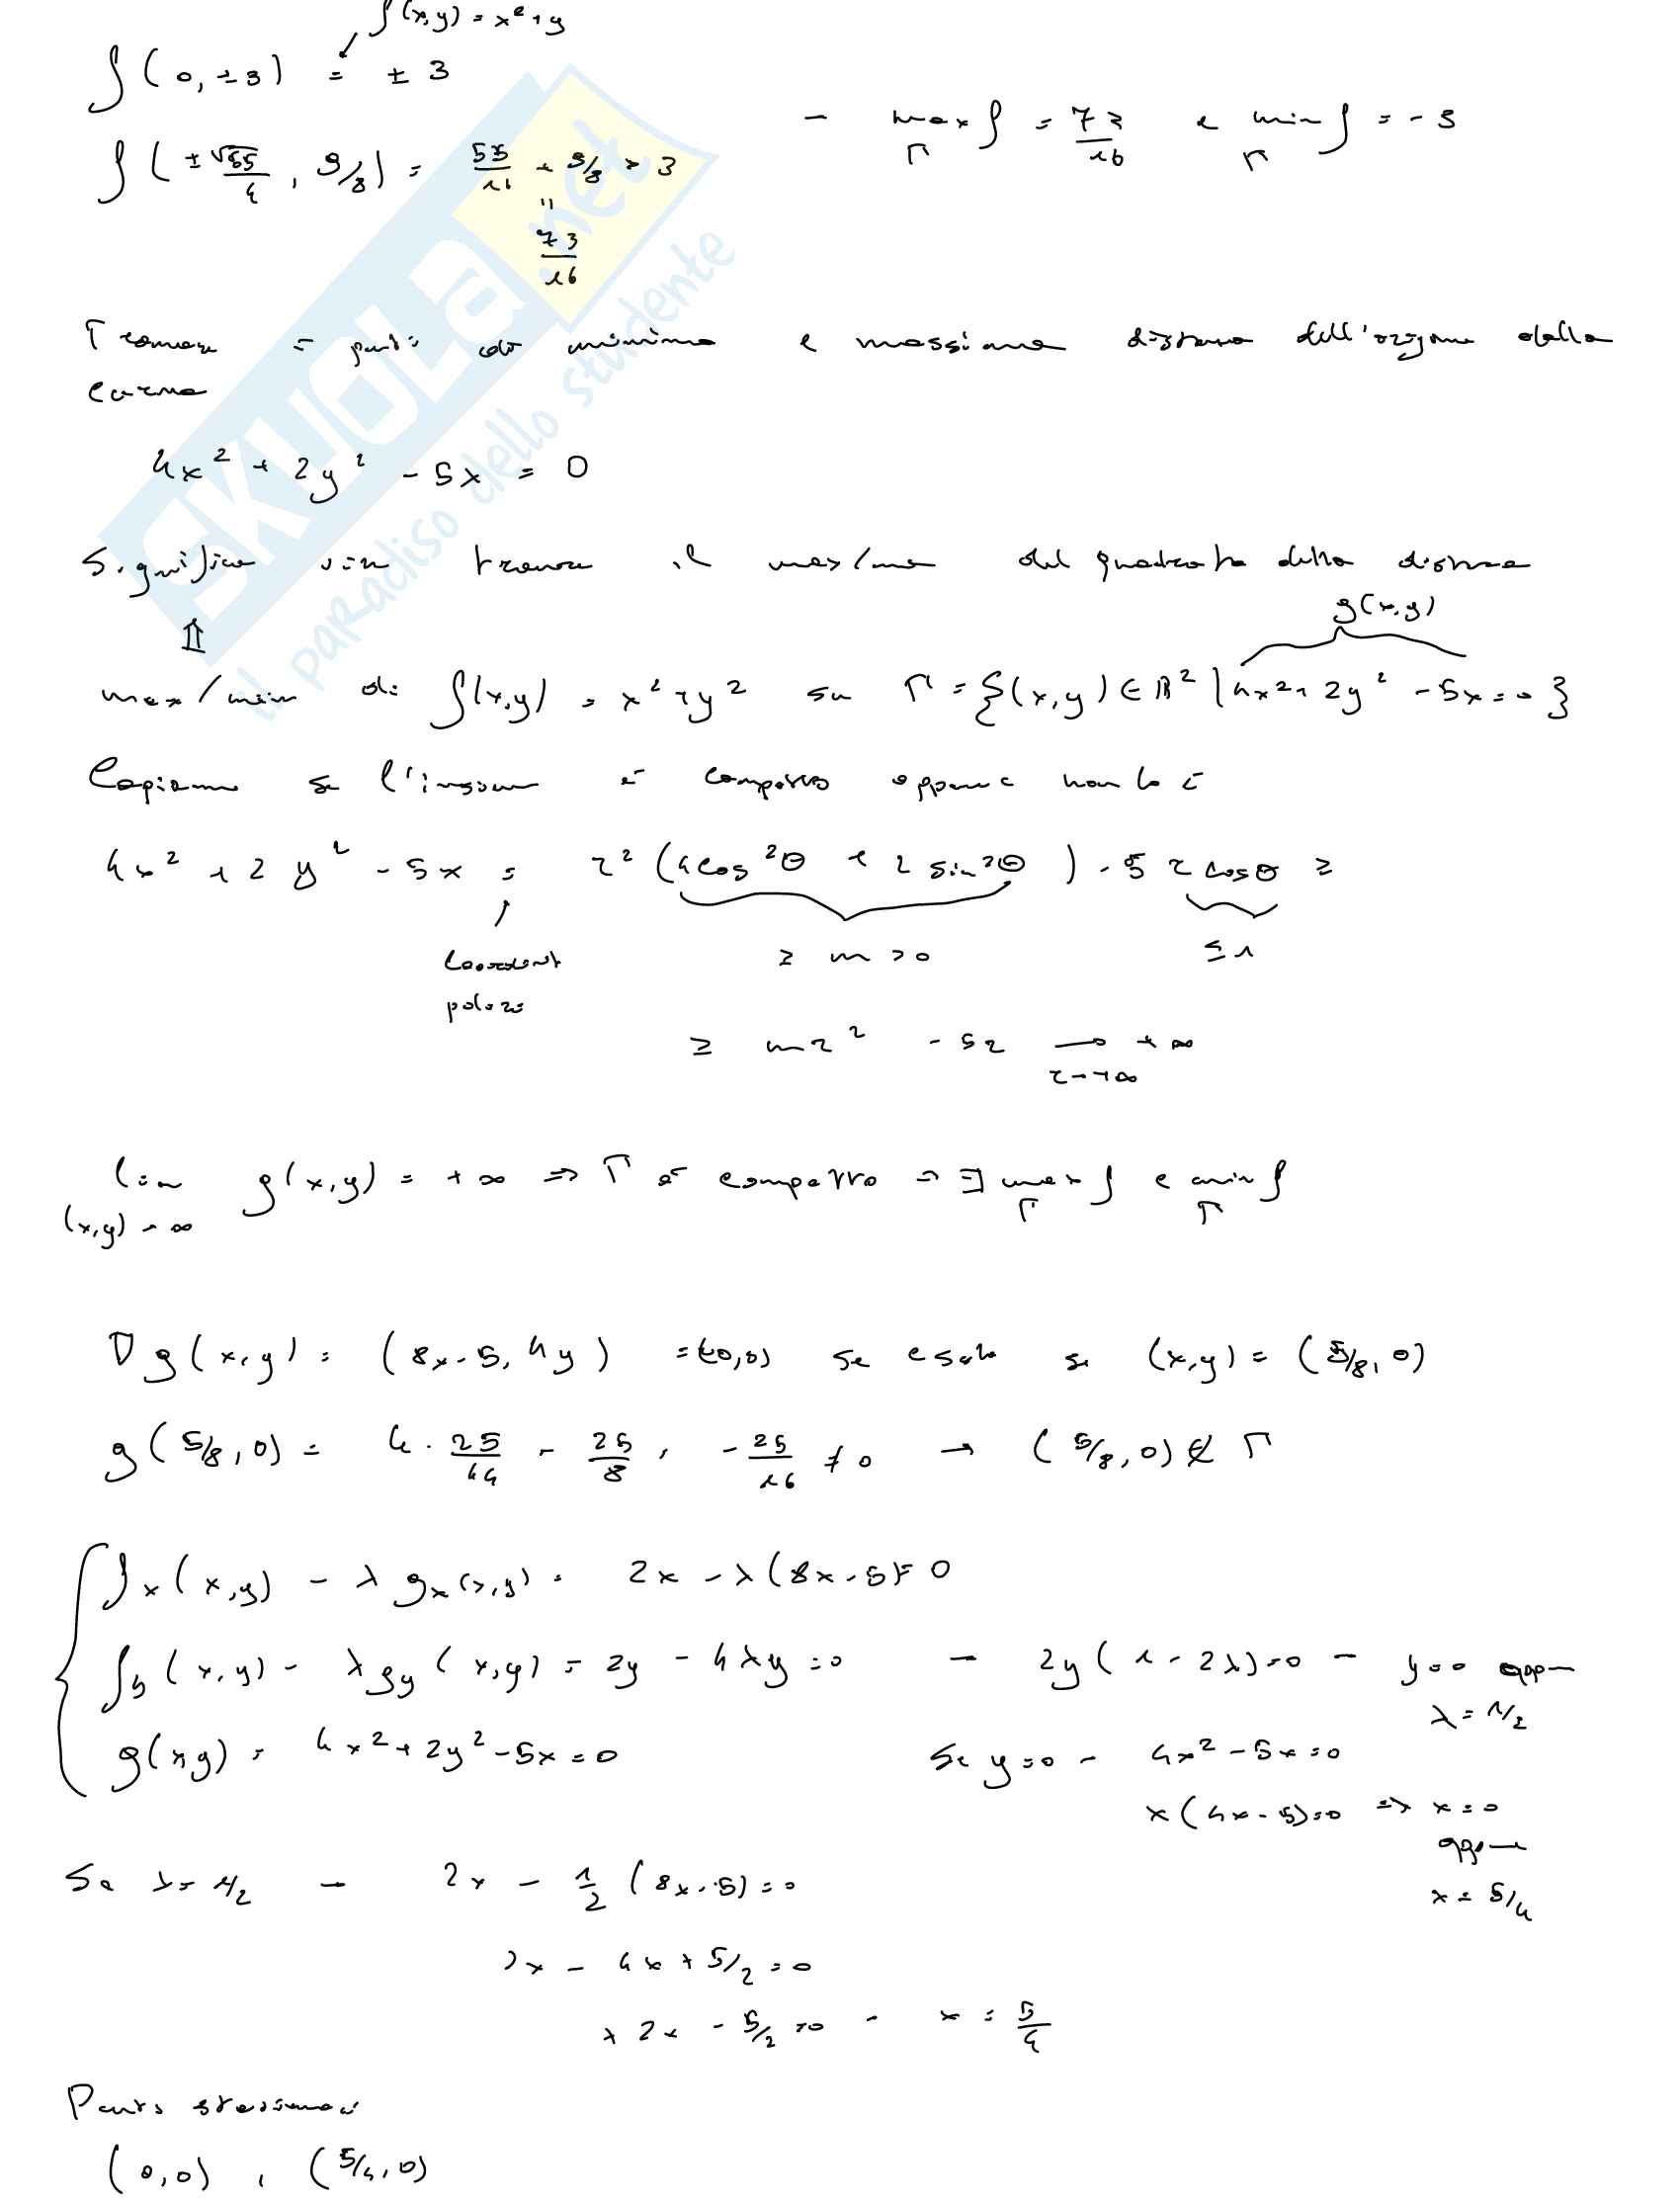 f(x,y) = x² + y
f(0, ±3) = ±3
f(±√55/4, 9/8) = 55/16 + 9/8 > 3
= 73/16
→ max_Γ f = 73/16 e min_Γ f = -3
Trovare i punti di minima e massima distanza dell'origine dalla
curva
4x² + 2y² - 5x = 0
Significa trovare il max/min del quadrato della distanza
⇕
g(x,y)
max/min di f(x,y) = x² + y² su Γ = {(x,y) ∈ ℝ² | 4x² + 2y² - 5x = 0}
Capiamo se l'insieme è compatto oppure non lo è
4x² + 2y² - 5x = r²(4cos²θ + 2 sin²θ) - 5 r cosθ ≥
coordinate polari
≥ m > 0
≤ 1
≥ m r² - 5r → +∞
r → +∞
lim g(x,y) = +∞ ⇒ Γ è compatto ⇒ ∃ max_Γ f e min_Γ f
(x,y) → ∞
∇g(x,y) = (8x - 5, 4y) = (0,0) se e solo se (x,y) = (5/8, 0)
g(5/8, 0) = 4 · 25/64 - 25/8 = -25/16 ≠ 0 → (5/8, 0) ∉ Γ
f_x(x,y) - λ g_x(x,y) = 2x - λ(8x - 5) = 0
f_y(x,y) - λ g_y(x,y) = 2y - 4λy = 0 → 2y(1 - 2λ) = 0 → y = 0 oppure
λ = 1/2
g(x,y) = 4x² + 2y² - 5x = 0
Se y = 0 → 4x² - 5x = 0
x(4x - 5) = 0 ⇒ x = 0
oppure
x = 5/4
Se λ = 1/2 → 2x - 1/2 (8x - 5) = 0
2x - 4x + 5/2 = 0
+2x - 5/2 = 0 → x = 5/4
Punti stazionari
(0,0) , (5/4, 0)
SKUOLA.net
il paradiso dello studente